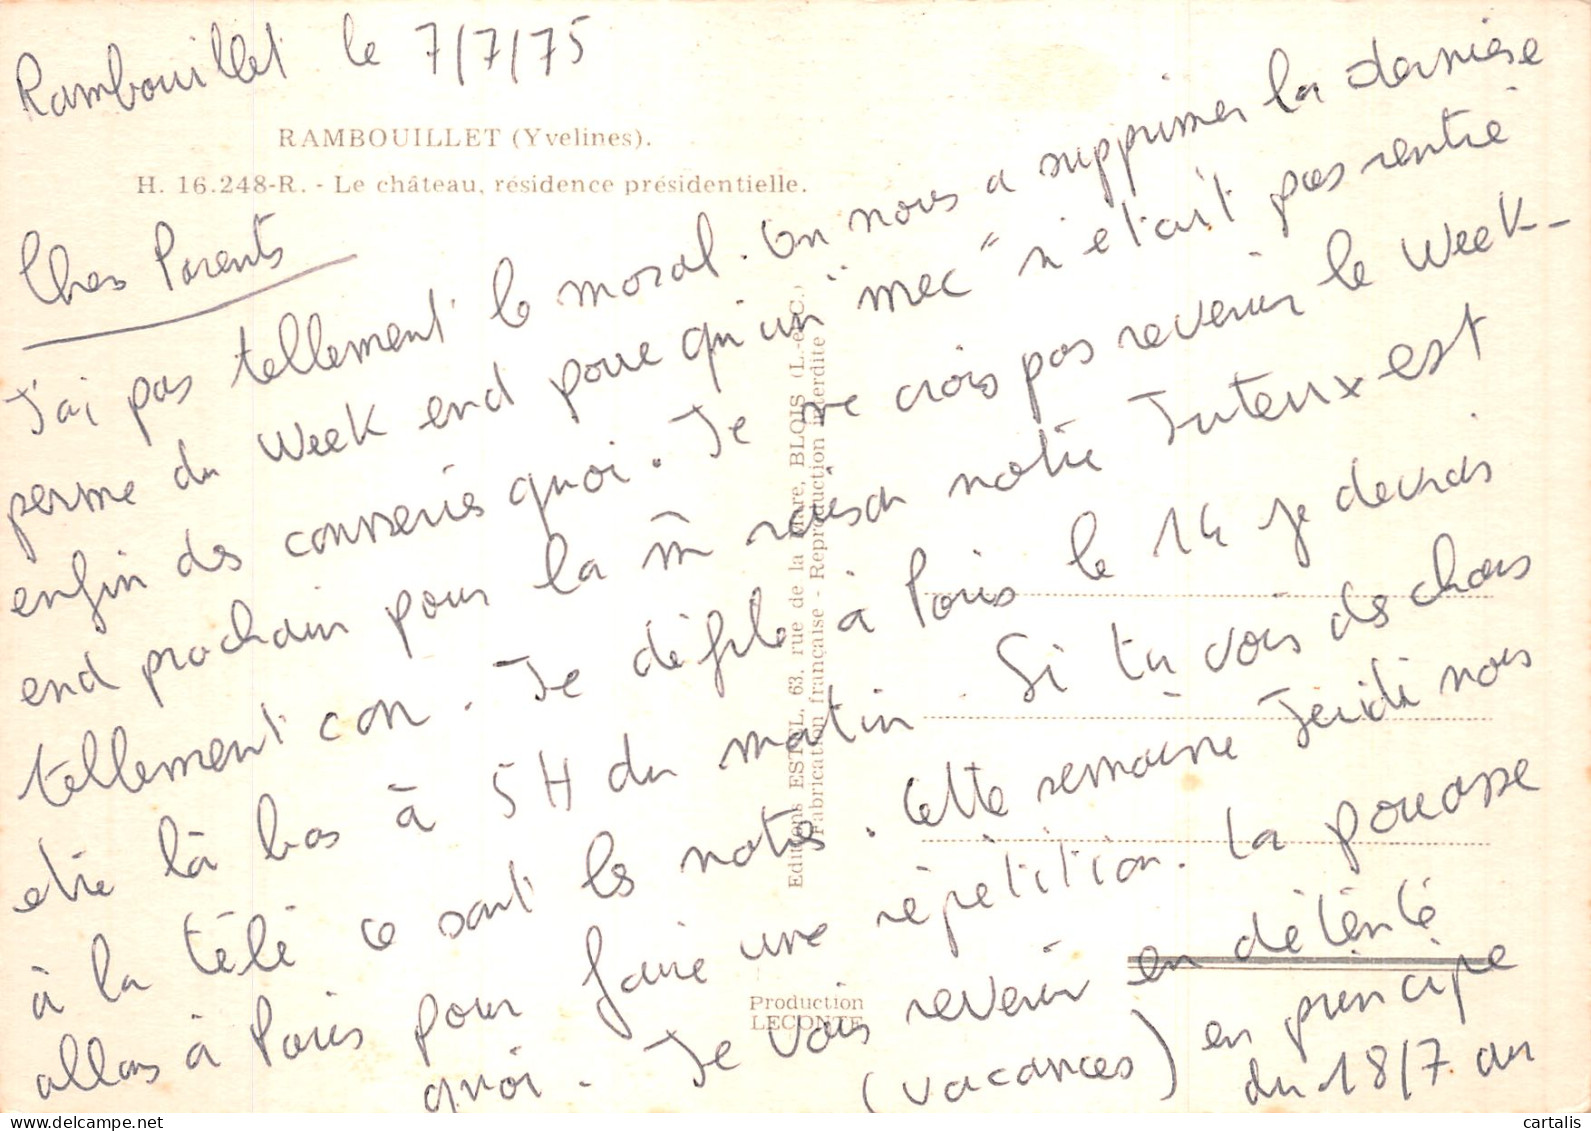 Rambouillet le 7/7/75
RAMBOUILLET (Yvelines).
H. 16.248-R. - Le château, résidence présidentielle.
Chers Parents
J'ai pas tellement le moral. On nous a supprimer la dernière
perme du Week end parce qu'un "mec" n'était pas rentré
enfin des conneries quoi. Je ne crois pas revenir le Week-
end prochain pour la m̂ raison notre Juteux est
tellement con. Je défile à Paris le 14 je devrais
etre là bas à 5H du matin. Si tu vois des chars
à la télé ce sont les notres. Cette semaine Jeudi nous
allons à Paris pour faire une répétition. La pouasse
quoi. Je vais revenir en détente
(vacances) en principe
du 18/7 au
Editions ESTEL, 63, rue de la Mare, BLOIS (L.-et-C.)
Fabrication française - Reproduction interdite
Production
LECONTE
cartalis
www.delcampe.net